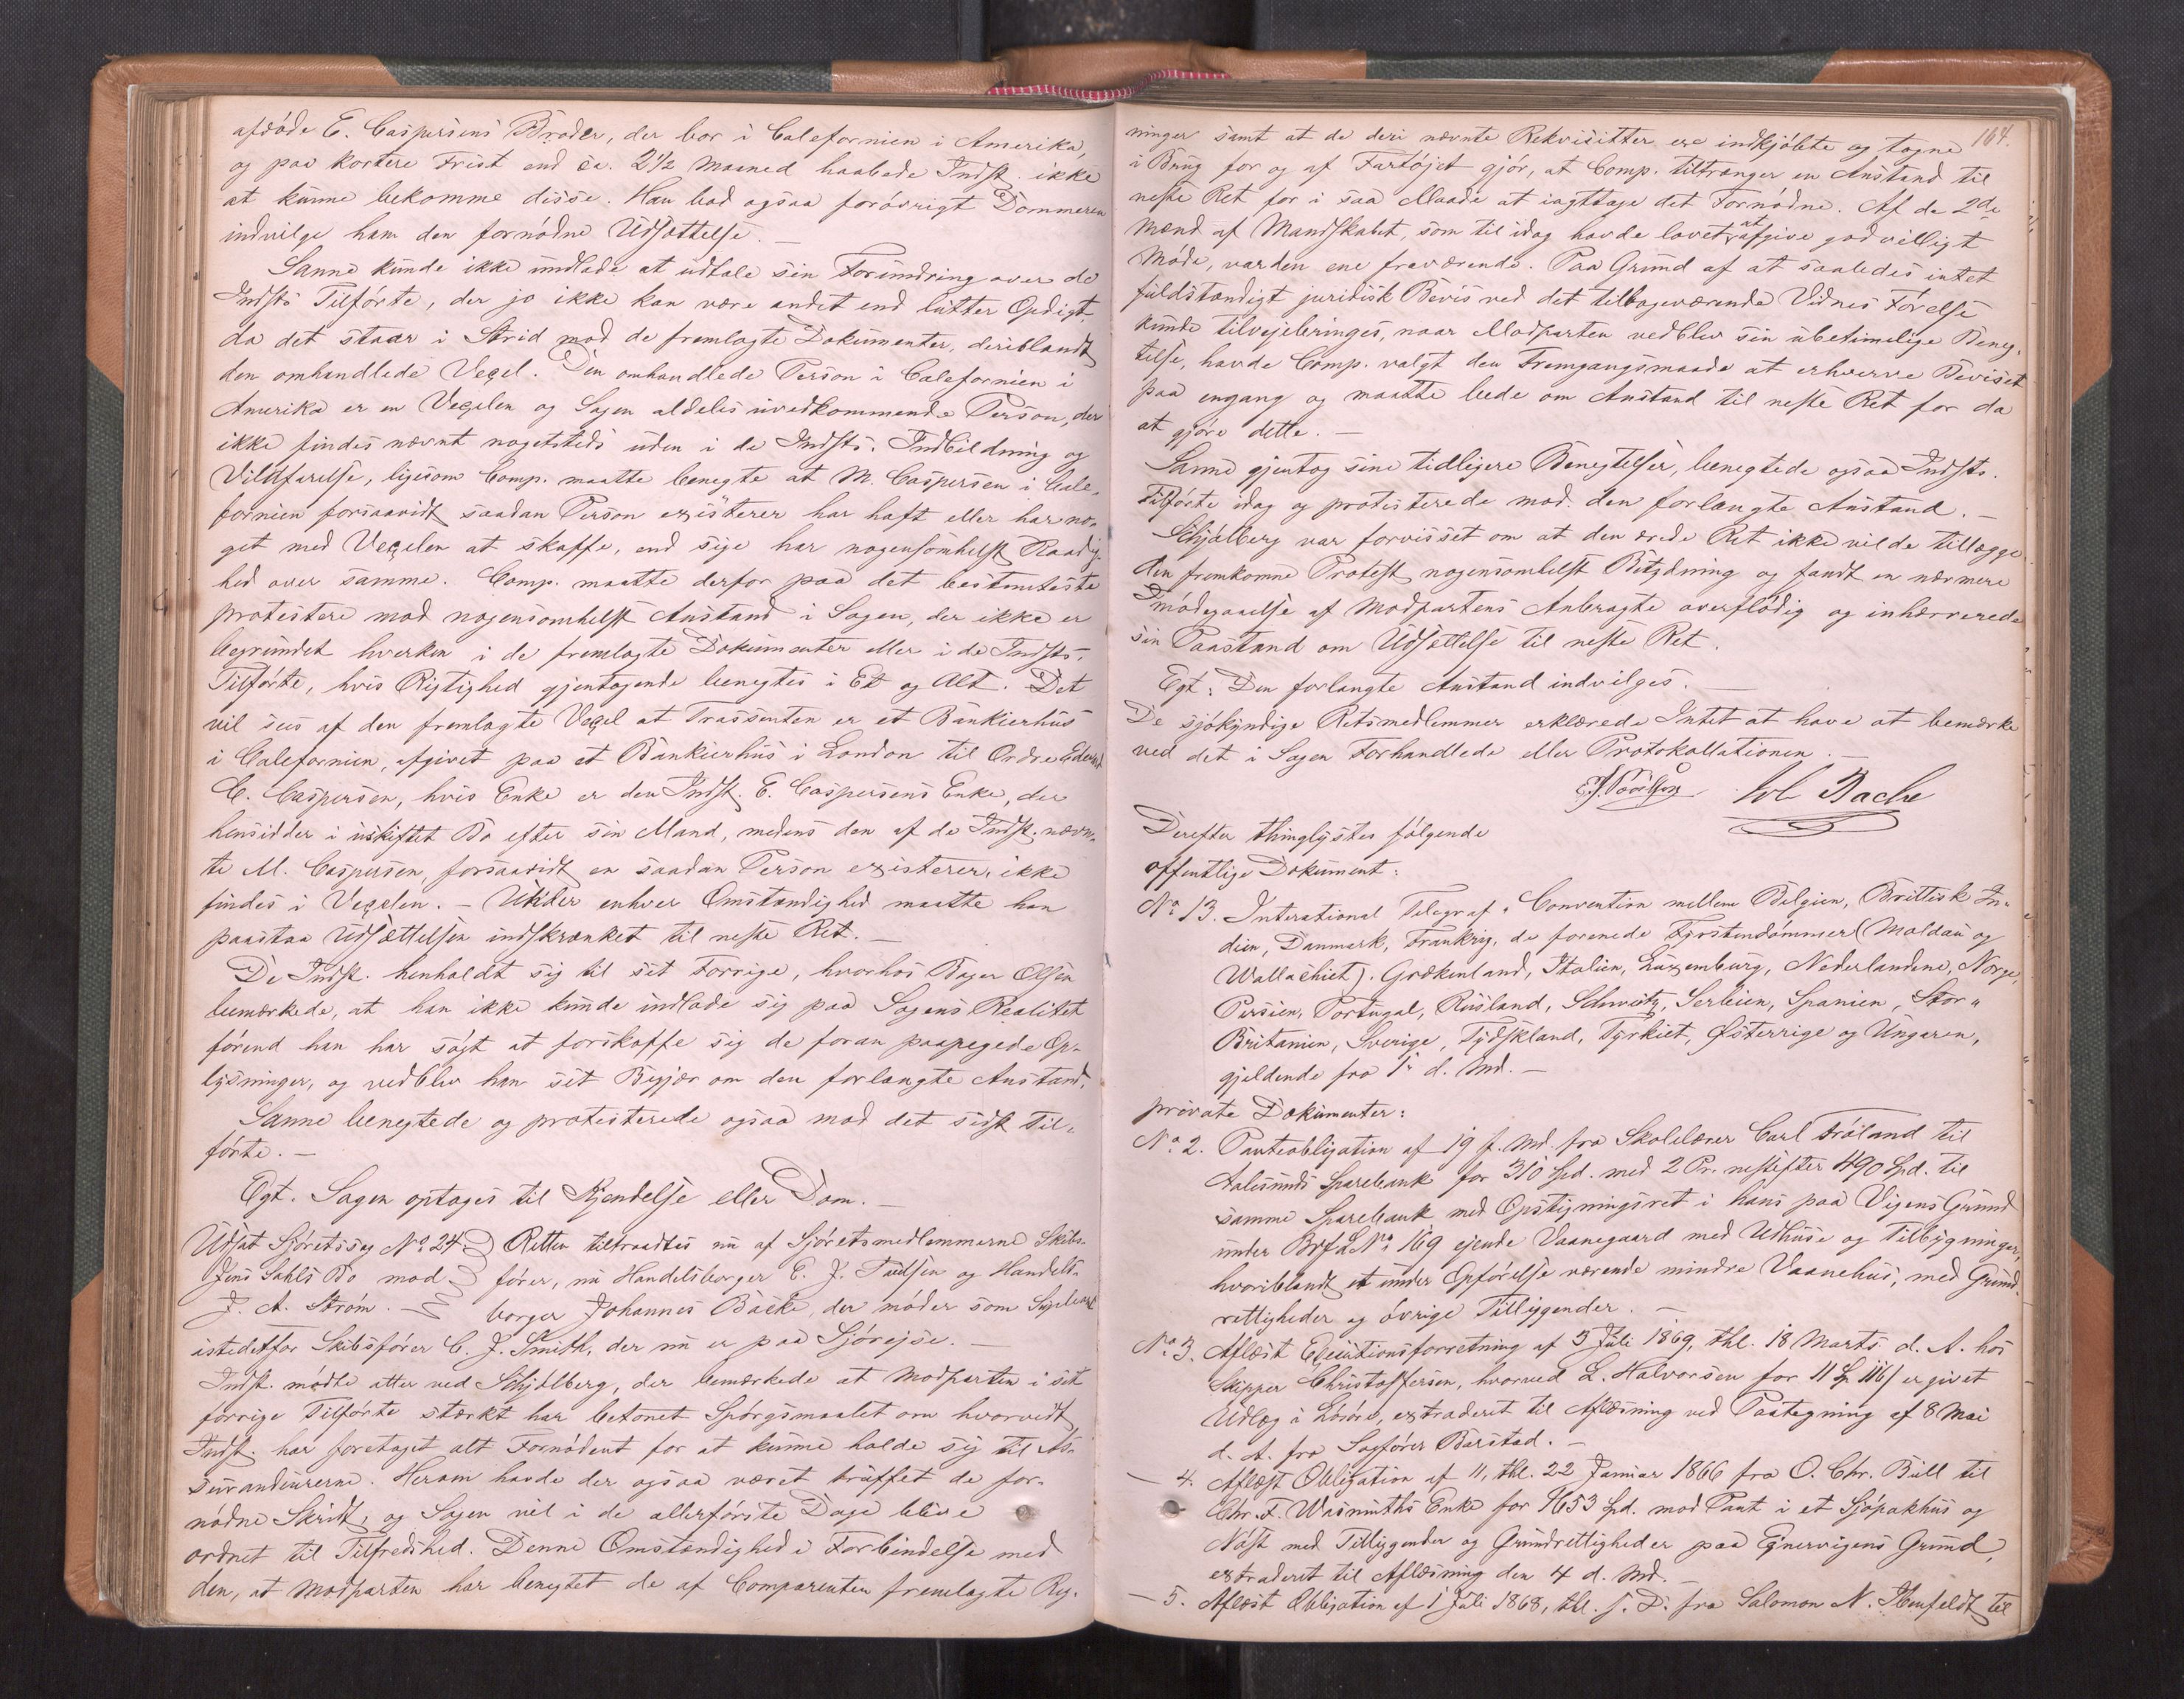 afdøde E. Caspersens Broder, der bor i Calefornien i Amerika,
og paa kortere Frist end ca. 2 1/2 Maaned haabede Indst. ikke
at kunne bekomme disse. Han bad ogsaa forøvrigt Dommeren
indvilge ham den fornødne Udsættelse. —
Sanne kunde ikke undlade at udtale sin Forundring over de
Indsts Tilførte, der jo ikke kan være andet end lutter Opdigt,
da det staar i Strid mod de fremlagte Dokumenter, deriblandt
den omhandlede Vexel. Den omhandlede Person i Calefornien i
Amerika er en Vexelen og Sagen aldeles uvedkommende Person, der
ikke findes nævnt nogetsteds uden i de Indsts. Indbildning og
Vildfarelse, ligesom Comp. maatte benegte at M. Caspersen i Cale-
fornien forsaavidt saadan Person existerer har haft eller har no-
get med Vexelen at skaffe, end sige har nogensomhelst Raadig-
hed over samme. Comp. maatte derfor paa det bestemteste
protestere mod nogensomhelst Anstand i Sagen, der ikke er
begrundet hverken i de fremlagte Dokumenter eller i de Indsts.
Tilførte, hvis Rigtighed gjentagende benegtes i Et og Alt. Det
vil sees af den fremlagte Vexel at Trassenten er et Bankierhus
i Calefornien, afgivet paa et Bankierhus i London til Ordre Edvard
C. Caspersen, hvis Enke er den Indst. E. Caspersens Enke, der
hensidder i uskiftet Bo efter sin Mand, medens den af de Indst. nævn-
te M. Caspersen, forsaavidt en saadan Person existerer, ikke
findes i Vexelen. — Under enhver Omstændighed maatte han
paastaa Udsættelsen indskrænket til neste Ret. —
De Indst. henholdt sig til sit Forrige, hvorhos Bager Olsen
bemærkede, at han ikke kunde indlade sig paa Sagens Realitet
førend han har søgt at forskaffe sig de foran paapegede Op-
lysninger, og vedblev han sit Begjær om den forlangte Anstand.
Sanne benegtede og protesterede ogsaa mod det sidst Til-
førte. —
Egt. Sagen optages til Kjendelse eller Dom. —
Udsat Sjøretssag No 24 Retten tiltraadtes nu af Sjøretsmedlemmerne Skibs-
Jens Gahls Bo mod fører, nu Handelsborger E. J. Poulsen og Handels-
J. A. Strøm. — borger Johannes Backe, der møder som Supleant
istedetfor Skibsfører C. J. Smith, der nu er paa Sjørejse. —
Indst. mødte atter ved Schjølberg, der bemærkede at Modparten i sit
forrige Tilførte stærkt har betonet Spørgsmaalet om hvorvidt
Indst. har foretaget alt Fornødent for at kunne holde sig til As-
surandeurerne. Herom havde der ogsaa været truffet de for-
nødne Skridt, og Sagen vil i de allerførste Dage blive
ordnet til Tilfredshed. Denne Omstændighed i Forbindelse med
den, at Modparten har benegtet de af Comparenten fremlagte Reg-
164.
ninger samt at de deri nævnte Rekvisitter ere indkjøbte og tagne
i Brug for og af Fartøjet gjør, at Comp. tiltrænger en Anstand til
neste Ret for i saa Maade at iagttage det Fornødne. Af de 2de
Mænd af Mandskabet, som til idag havde lovet at afgive godvilligt
Møde, var den ene fraværende. Paa Grund af at saaledes intet
fuldstændigt juridisk Bevis ved det tilbageværende Vidnes Førelse
kunde tilvejebringes, naar Modparten vedblev sin ubetimelige Beneg-
telse, havde Comp. valgt den Fremgangsmaade at erhverve Beviset
paa engang og maatte bede om Anstand til neste Ret for da
at gjøre dette. —
Sanne gjentog sine tidligere Benegtelser, benegtede ogsaa Indsts.
Tilførte idag og protesterede mod den forlangte Anstand. —
Schjølberg var forvisset om at den ærede Ret ikke vilde tillægge
den fremkomne Protest nogensomhelst Betydning og fandt en nærmere
Imødegaaelse af Modpartens Anbragte overflødig og inhærerede
sin Paastand om Udsættelse til neste Ret.
Egt: Den forlangte Anstand indvilges. —
De sjøkyndige Retsmedlemmer erklærede Intet at have at bemærke
ved det i Sagen Forhandlede eller Protokollationen. —
E. J. Poulsen Joh Backe
Derefter thinglystes følgende
offentlige Dokument:
No 13. International Telegraf-Convention mellem Belgien, Brittisk In-
dien, Danmark, Frankrig, de forenede Fyrstendømmer (Moldau og
Wallachiet), Grækenland, Italien, Luxemburg, Nederlandene, Norge,
Persien, Portugal, Rusland, Schweitz, Serbien, Spanien, Stor-
Britanien, Sverige, Tydskland, Tyrkiet, Østerrige og Ungarn,
gjeldende fra 1ste d. Md. —
private Dokumenter:
No. 2. Panteobligation af 19 f. Md. fra Skolelærer Carl Frøland til
Aalesunds Sparebank for 310 Spd. med 2 Pr. nestefter 490 Spd. til
samme Sparebank med Opstigningsret i hans paa Vigens Grund
under Brf L No 169 ejende Vaanegaard med Udhuse og Tilbygninger,
hvoriblandt et under Opførelse værende mindre Vaanehus, med Grund-
rettigheder og øvrige Tilligender. —
No. 3. Aflæst Executionsforretning af 5 Juli 1869, thl. 18 Marts d. A. hos
Skipper Christoffersen, hvorved L. Halvorsen for 11 Sp 116 s er givet
Udlæg i Løsøre, extraderet til Aflæsning ved Paategning af 8 Mai
d. A. fra Sagfører Barstad. —
— 4. Aflæst Obligation af 11, thl. 22 Januar 1866 fra O. Chr. Bull til
Chr. F. Wasmuths Enke for 1653 Spd. mod Pant i et Sjøpakhus og
Nøst med Tilligender og Grundrettigheder paa Ejnervigens Grund,
extraderet til Aflæsning den 4 d. Md.
— 5. Aflæst Obligation af 1 Juli 1868, thl. s. D. fra Salomon N. til